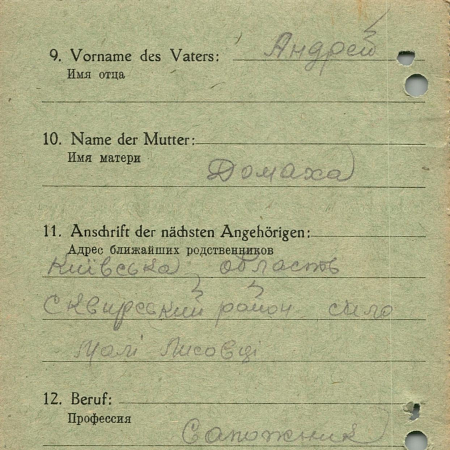 9. Vorname des Vaters: Андрей
Имя отца
10. Name der Mutter:
Имя матери
Домаха
11. Anschrift der nächsten Angehörigen:
Адрес ближайших родственников
Київська область
Сквирський район село
Малі Лисовці
12. Beruf:
Профессия
Сапожник